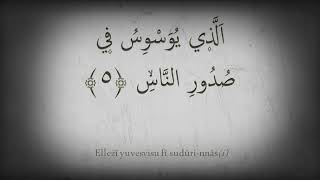 اَلَّذ۪ي يُوَسْوِسُ ف۪ي
صُدُورِ النَّاسِۙ ﴿٥﴾
Ellezî yuvesvisu fî sudûri-nnâs(i)